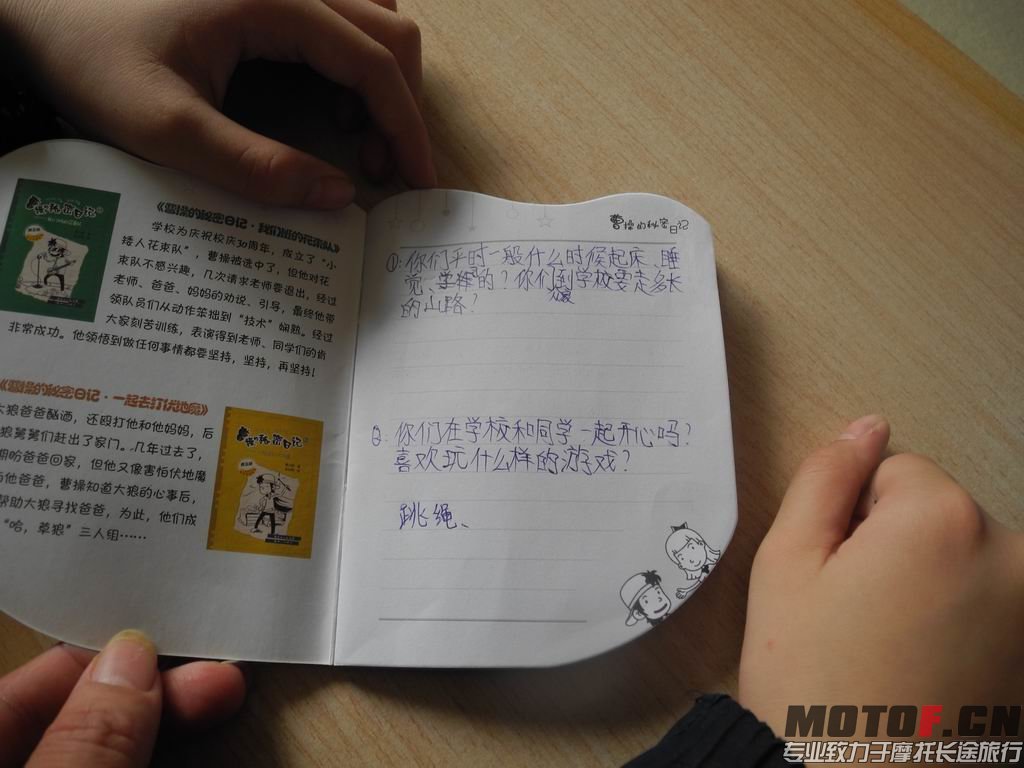 《曹操的秘密日记·我们班的花束队》
学校为庆祝校庆30周年，成立了“小
矮人花束队”，曹操被选中了，但他对花
束队不感兴趣，几次请求老师要退出，经过
老师、爸爸、妈妈的劝说、引导，最终他带
领队员们从动作笨拙到“技术”娴熟。经过
大家刻苦训练，表演得到老师、同学们的肯
非常成功。他领悟到做任何事情都要坚持，坚持，再坚持！
《曹操的秘密日记·一起去打伏地魔》
大狼爸爸酗酒，还殴打他和他妈妈，后
狼舅舅们赶出了家门。几年过去了，
期盼爸爸回家，但他又像害怕伏地魔
怕他爸爸，曹操知道大狼的心事后，
帮助大狼寻找爸爸，为此，他们成
“哈，草狼”三人组……
曹操的秘密日记
曹操的秘密日记
曹操的秘密日记
①:你们平时一般什么时候起床、睡
觉、的？你们到学校要走多长
的山路？
2:你们在学校和同学一起开心吗？
喜欢玩什么样的游戏？
跳绳、
MOTOF.CN
专业致力于摩托长途旅行